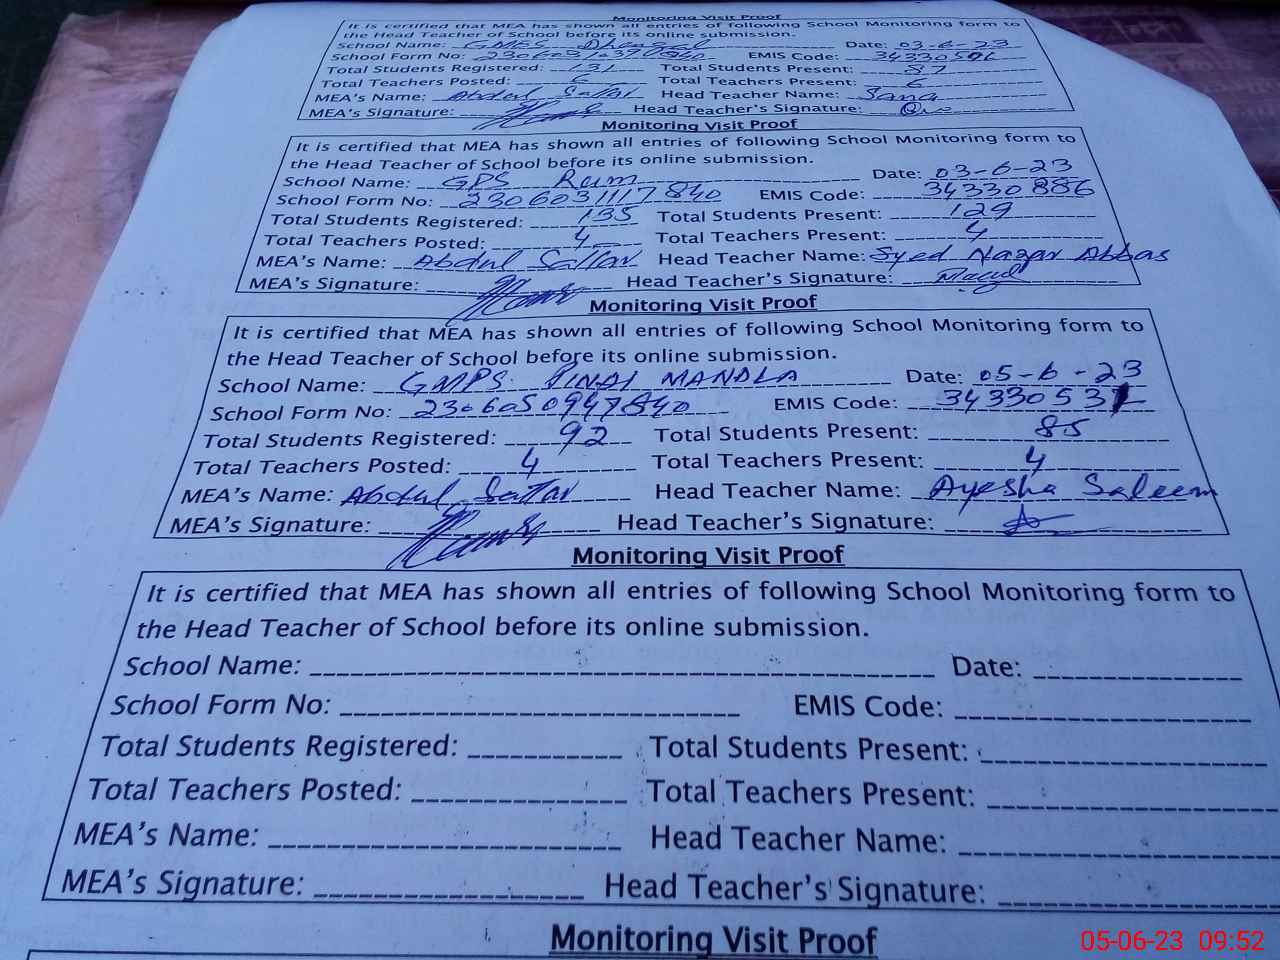 Monitoring Visit Proof
It is certified that MEA has shown all entries of following School Monitoring form to
the Head Teacher of School before its online submission.
School Name: GMPS Dhengal Date: 03-6-23
School Form No: EMIS Code: 34330596
Total Students Registered: 131 Total Students Present: 87
Total Teachers Posted: 6 Total Teachers Present: 6
MEA's Name: Abdul Sattar Head Teacher Name: Sana
MEA's Signature: Head Teacher's Signature:
Monitoring Visit Proof
It is certified that MEA has shown all entries of following School Monitoring form to
the Head Teacher of School before its online submission.
School Name: GPS Rum Date: 03-6-23
School Form No: 2306031117840 EMIS Code: 34330886
Total Students Registered: 135 Total Students Present: 129
Total Teachers Posted: 4 Total Teachers Present: 4
MEA's Name: Abdul Sattar Head Teacher Name: Syed Nazar Abbas
MEA's Signature: Head Teacher's Signature:
Monitoring Visit Proof
It is certified that MEA has shown all entries of following School Monitoring form to
the Head Teacher of School before its online submission.
School Name: GMPS PINDI MANDLA Date: 05-6-23
School Form No: 2306050947840 EMIS Code: 34330531
Total Students Registered: 92 Total Students Present: 85
Total Teachers Posted: 4 Total Teachers Present: 4
MEA's Name: Abdul Sattar Head Teacher Name: Ayesha Saleem
MEA's Signature: Head Teacher's Signature:
Monitoring Visit Proof
It is certified that MEA has shown all entries of following School Monitoring form to
the Head Teacher of School before its online submission.
School Name: Date:
School Form No: EMIS Code:
Total Students Registered: Total Students Present:
Total Teachers Posted: Total Teachers Present:
MEA's Name: Head Teacher Name:
MEA's Signature: Head Teacher's Signature:
Monitoring Visit Proof
05-06-23 09:52